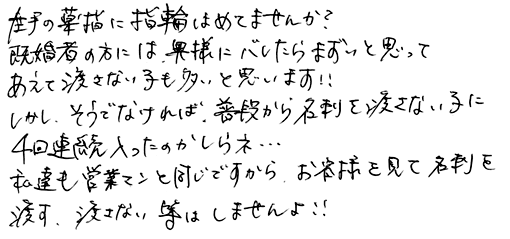 左手の薬指に指輪はめてませんか?
既婚者の方には、奥様にバレたらまずいと思って
あえて渡さない子も多いと思います!!
しかし、そうでなければ、普段から名刺を渡さない子に
4回連続入ったのかしらネ…
私達も営業マンと同じですから、お客様を見て名刺を
渡す、渡さない等はしませんよ!!